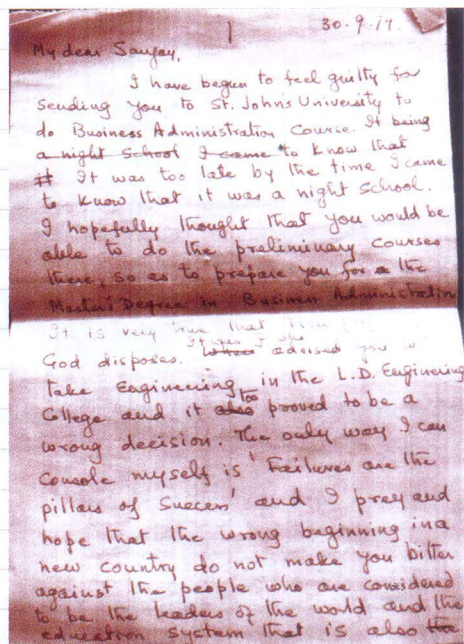 30.9.17.
My dear Sanjay,
I have begun to feel guilty for
sending you to St. John's University to
do Business Administration Course. It being
a night School I came to know that
It was too late by the time I came
to know that it was a night School.
I hopefully thought that you would be
able to do the preliminary courses
there, so as to prepare you for the
Master's Degree in Business Administration
It is very true that
God disposes. It was I who advised you to
take Engineering in the L.D. Engineering
College and it also too proved to be a
wrong decision. The only way I can
Console myself is 'Failures are the
pillars of Success' and I pray and
hope that the wrong beginning in a
new country do not make you bitter
against the people who are considered
to be the leaders of the world and the
education system that is also the